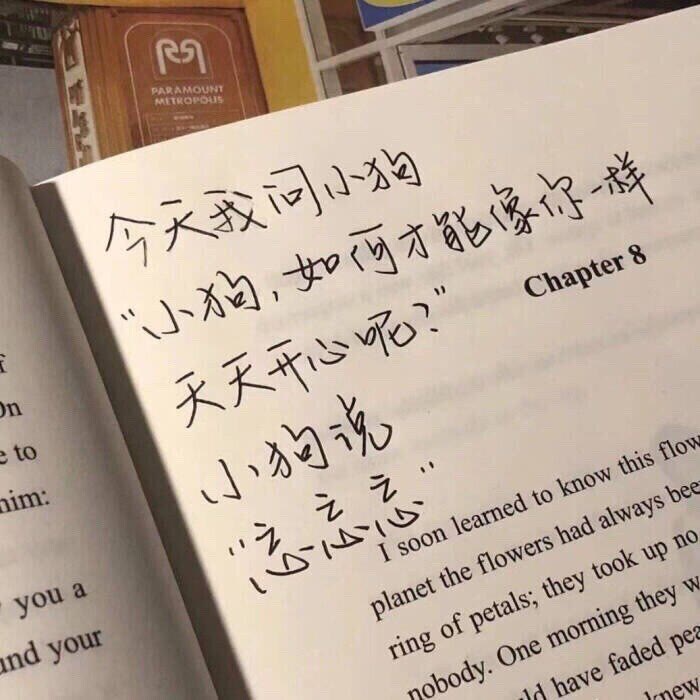 PARAMOUNT
METROPOLIS
今天我问小狗
“小狗，如何才能像你一样
天天开心呢？”
小狗说
“忘忘忘”
On
e to
him:
you a
and your
Chapter 8
I soon learned to know this flow
planet the flowers had always bee
ring of petals; they took up no
nobody. One morning they w
have faded pea
knew